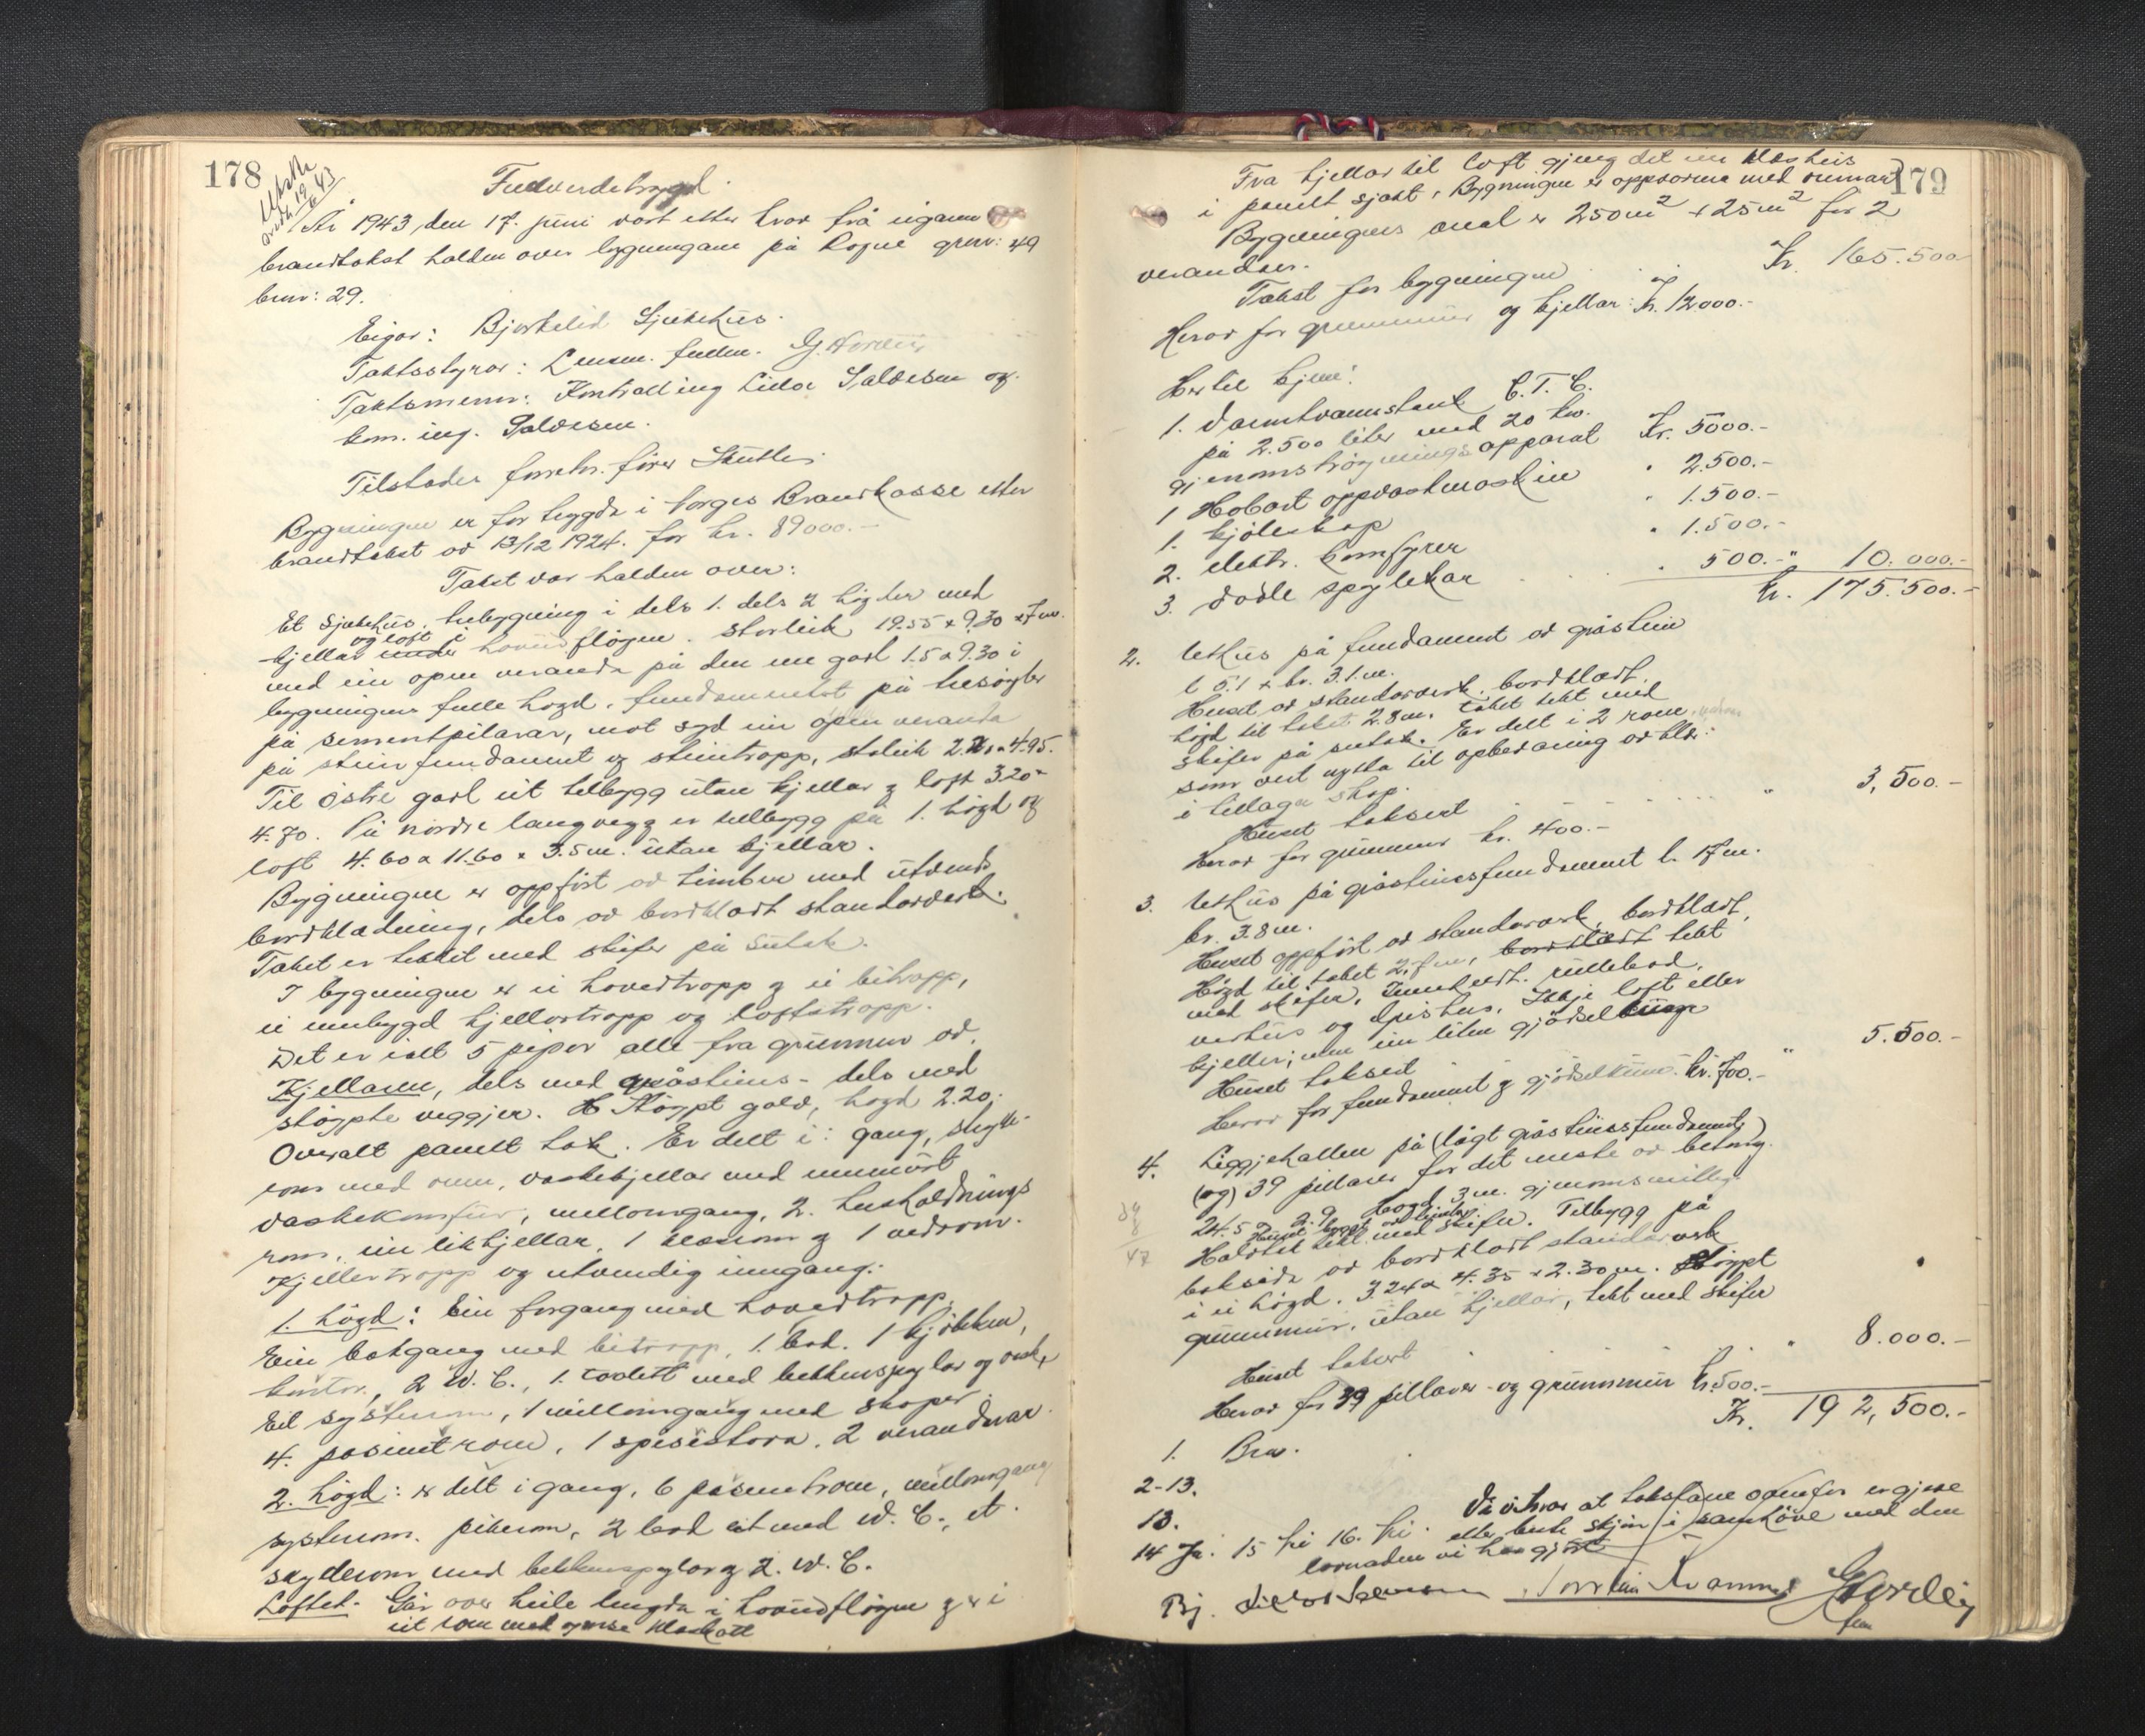 178
Utskr.
17/6 43
Fullverdetrygd.
År 1943, den 17. juni vart etter krav frå eigaren
brandtakst halden over bygningane på Rogne gnr: 49
bnr: 29.
Eigar: Bjorkelid Sjukehus.
Takststyrar: Lensm. fullm.
Takstmenn: Kontroll ing Salvesen og
kom. ing. Salvesen.
Tilstades forretn. fører
Bygningen er før trygda i Norges Brandkasse etter
brandtakst av 13/12 1924. for kr. 89000.-
Takst var halden over:
Et Sjukehus. trebygning i dels 1. dels 2 høgder med
og loft i
kjellar under hovudfløyen. Storleik 19.55 x 9.30 x 7 m.
med ein open veranda på den ene gavl 1.5 x 9.30 i
bygningens fulle høgd. fundamentet på tresøyler
på sementpilarar, mot syd ein open veranda
på stein fundament og steintropp, storleik 2.20 x 4.95.
Til østre gavl eit tilbygg utan kjellar og loft 3.20 x
4.70. På nordre langvegg er tilbygg på 1. høgd og
loft 4.60 x 11.60 x 3.5 m. utan kjellar.
Bygningen er oppført av timber med utvendig
bordkledning, dels av bordklædt standarverk.
Taket er tekkit med skifer på sutak.
I bygningen er ei hovedtropp og ei bitropp,
ei innbygd kjellartropp og loftstropp.
Det er ialt 5 piper alle fra grunnmur av.
Kjellaren, dels med gråsteins- dels med
støypte veggjer. Støypt golv, høgd 2.20,
Overalt panelt tak. Er delt i: gang,
rom med omn, vaskekjellar med innmurt
vaskekomfur, mellomgang, 2. husholdnings
rom, ein likkjellar, 1 rom og 1 vedrom.
Kjellertropp og utvendig inngang.
1. høgd: Ein forgang med hovedtropp.
Ein bakgang med bitropp, 1. bad. 1 kjøkken,
kontor, 2 W.C., 1. toalett med bekkenspylar og vask,
Eit systerrom, 1 mellomgang med skaper
4. pasientrom, 1 spisestova. 2 verandaer.
2. høgd: er delt i gang, 6 pasientrom, mellomgang
systerrom. pikerom, 2 bad eit med W.C., et
skyllerom med bekkenspylar og 2. W.C.
Loftet. Går over heile lengda i hovudfløyen og er i
eit rom med
179
Fra kjellar til loft gjeng det ein heis
i panelt sjakt. Bygningen er oppvarma med omnar
Bygningens areal er 250 m² + 25 m² for 2
verandaer.
Takst for bygningen Kr. 165.500
Herav for grunnmur og kjellar: Kr. 12000.-
Her til kjem:
1. varmtvannstank C.T.C.
på 2.500 liter med 20 kw.
gjenomstrøymingsapparat Kr. 5000.-
1 Hobart oppvaskmaskin " 2.500.-
1. kjøleskap " 1.500.-
2. elektr. komfyrer " 1.500.-
3. doble spylekar " 500.- " 10.000.-
Kr. 175.500.-
2. Uthus på fundament av gråstein
l 5.1 x br. 3.1 m.
Huset av standarverk. bordklædt.
høgd til taket 2.8 m. taket tekt med
skifer på sutak. Er delt i 2 rom
som vert nytta til opbevaring av
i tillaga skap.
Huset taksert " 3,500.-
Herav for grunnmur kr. 400.-
3. Uthus på gråsteinsfundament l. 17 m.
br. 3.8 m.
Huset oppført av standarverk, bordklædt,
Høgd til taket 2,7 m, bordklædt tekt
med skifer, Innreidt. rullebod,
vedhus og grishus. Ikkje loft eller
kjeller; men ein liten gjødselbinge
Huset taksert " 5.500.-
Herav for fundament og gjødselkum. kr. 700.-
4. Liggjehallen på (lågt gråsteinsfundament)
(og) 39 pillarer for det meste av betong.
24.5 x 2.9 Høgd 3 m. gjenomsnittleg.
Huset bygt av tømmer
Halvtak tekt med skifer. Tilbygg på
baksida av bordklædt standarverk
i ei høgd. 3.24 x 4.35 x 2.30 m. Støypt
grunnmur, utan kjellar, tekt med skifer
Huset taksert " 8.000.-
Herav for 39 pillarer og grunnmur kr. 500.-
Kr. 192,500.-
1. Bra.
2-13.
13.
14 Ja. 15 16.
Vi vitnar at takstane ovanfor er gjevne
etter beste skjøn i samhøve med den
lovnaden vi har gjort